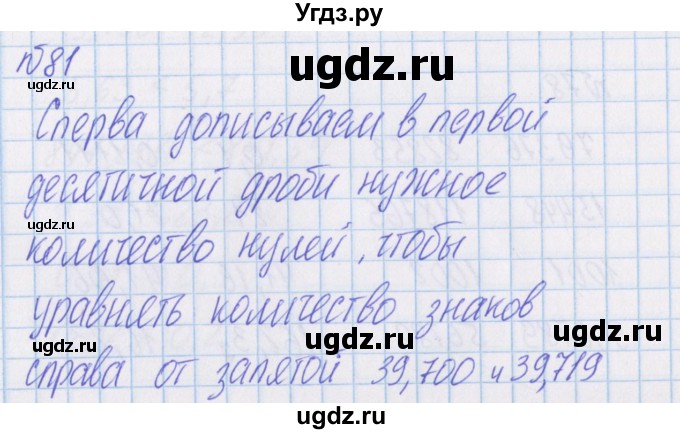 Угдз.ру
№581
ugdz.ru
ugdz.ru
Сперва дописываем в первой
ugdz.ru
десятичной дроби нужное
ugdz.ru
ugdz.ru
количество нулей, чтобы
ugdz.ru
уравнять количество знаков
ugdz.ru
ugdz.ru
справа от запятой 39,700 и 39,719
ugdz.ru